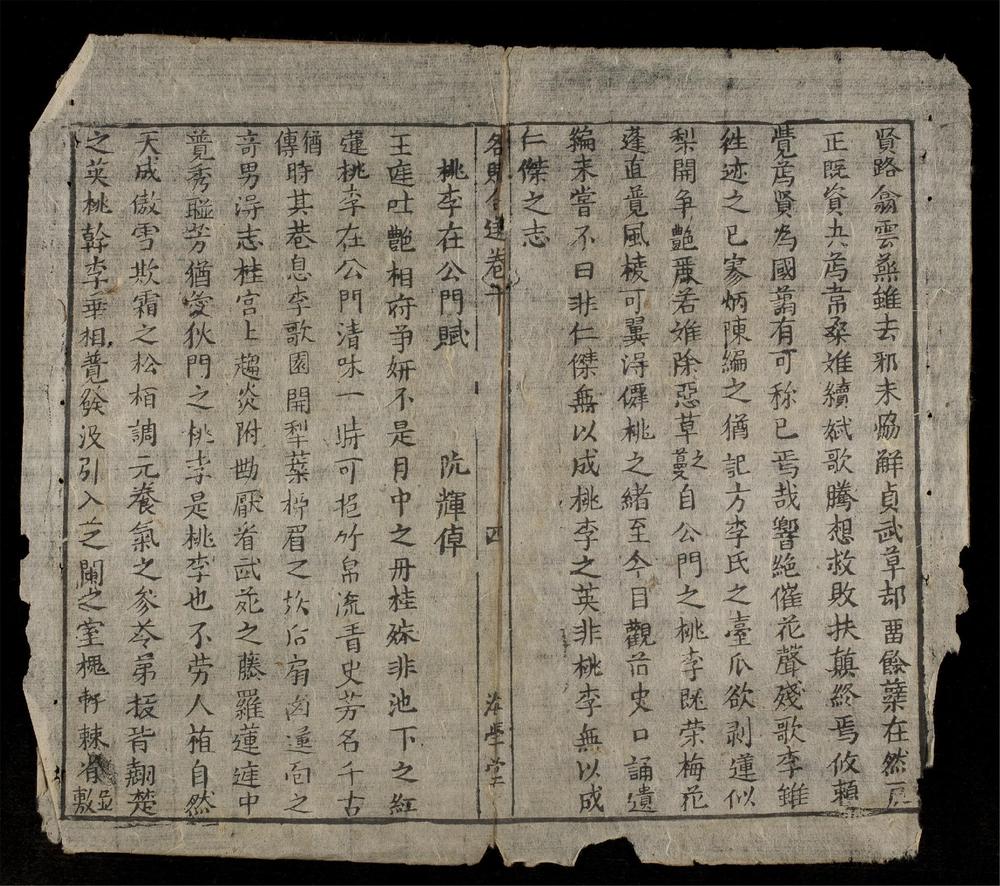 賢路翕雲蒸雖去邪未恊解貞武草却畱餘蘖在然一唇
正既資共焉常桑雖續斌歌騰想救敗扶顛終焉攸賴
覺焉賢為國蓊有可称已焉哉響絶催花聲殘歌李雖
徃迹之已寥炳陳編之猶記方李氏之臺瓜欲剥蓮似
梨開争艶䕥若难除惡草之蔓自公門之桃李既荣梅花
蓬直竟風棱可翼淂僻桃之緒至今目觀芸史口誦遺
編未嘗不曰非仁傑無以成桃李之英非桃李無以成
仁傑之志
名賦合選卷十 四 海學堂
桃李在公門賦 阮輝倬
王庭吐艶相府争妍不是月中之丹桂殊非池下之紅
蓮桃李在公門清味一時可挹竹帛流青史芳名千古
猶傳時其巷息李歌園開犁葉栁眉之 后扇 蓮面之
竒男淂志桂宮上趨炎附勢厭看武苑之藤羅蓮庭中
競秀聯芳猶愛狄門之桃李是桃李也不劳人植自然
天成傲雪欺霜之松栢調元養氣之參苓第扳皆翹楚
之英桃幹李華相競發汲引入芝蘭之室槐軒棘省並敷